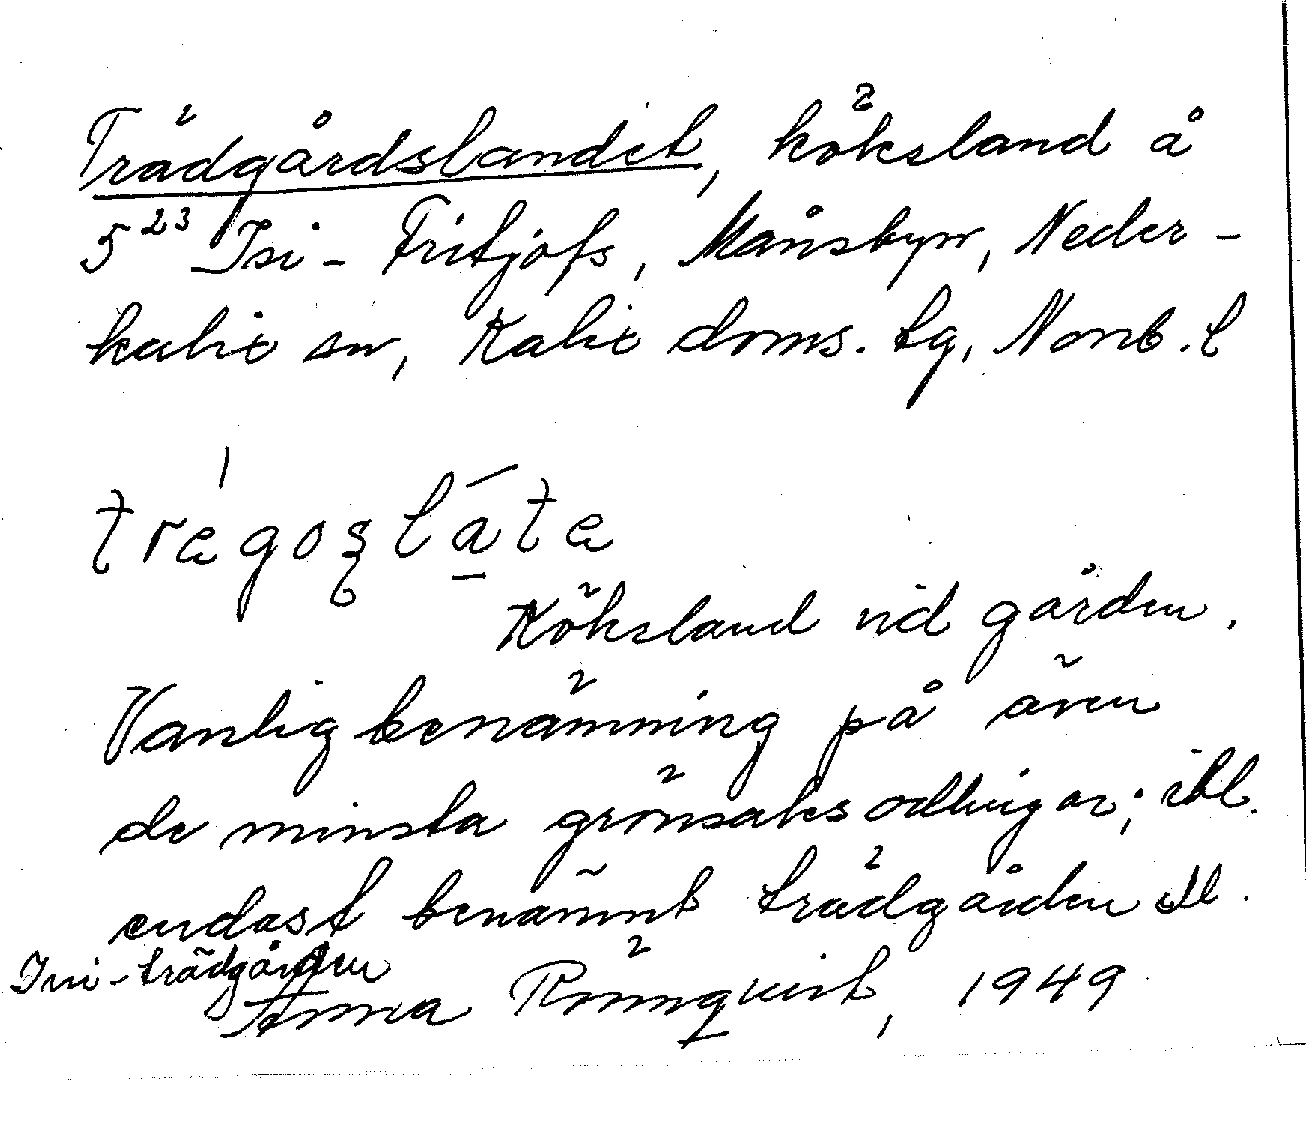 Trädgårdslandet, köksland å
5²³ Isi-Fritjofs, Månsbyn, Neder-
kalix sn, Kalix doms. tg, Norrb. l
tregoʂláta
Köksland vid gården.
Vanlig benämning på även
de minsta grönsaksodlingar; ibl.
endast benämnt trädgården ell.
Isi-trädgården
Anna Rönnqvist, 1949